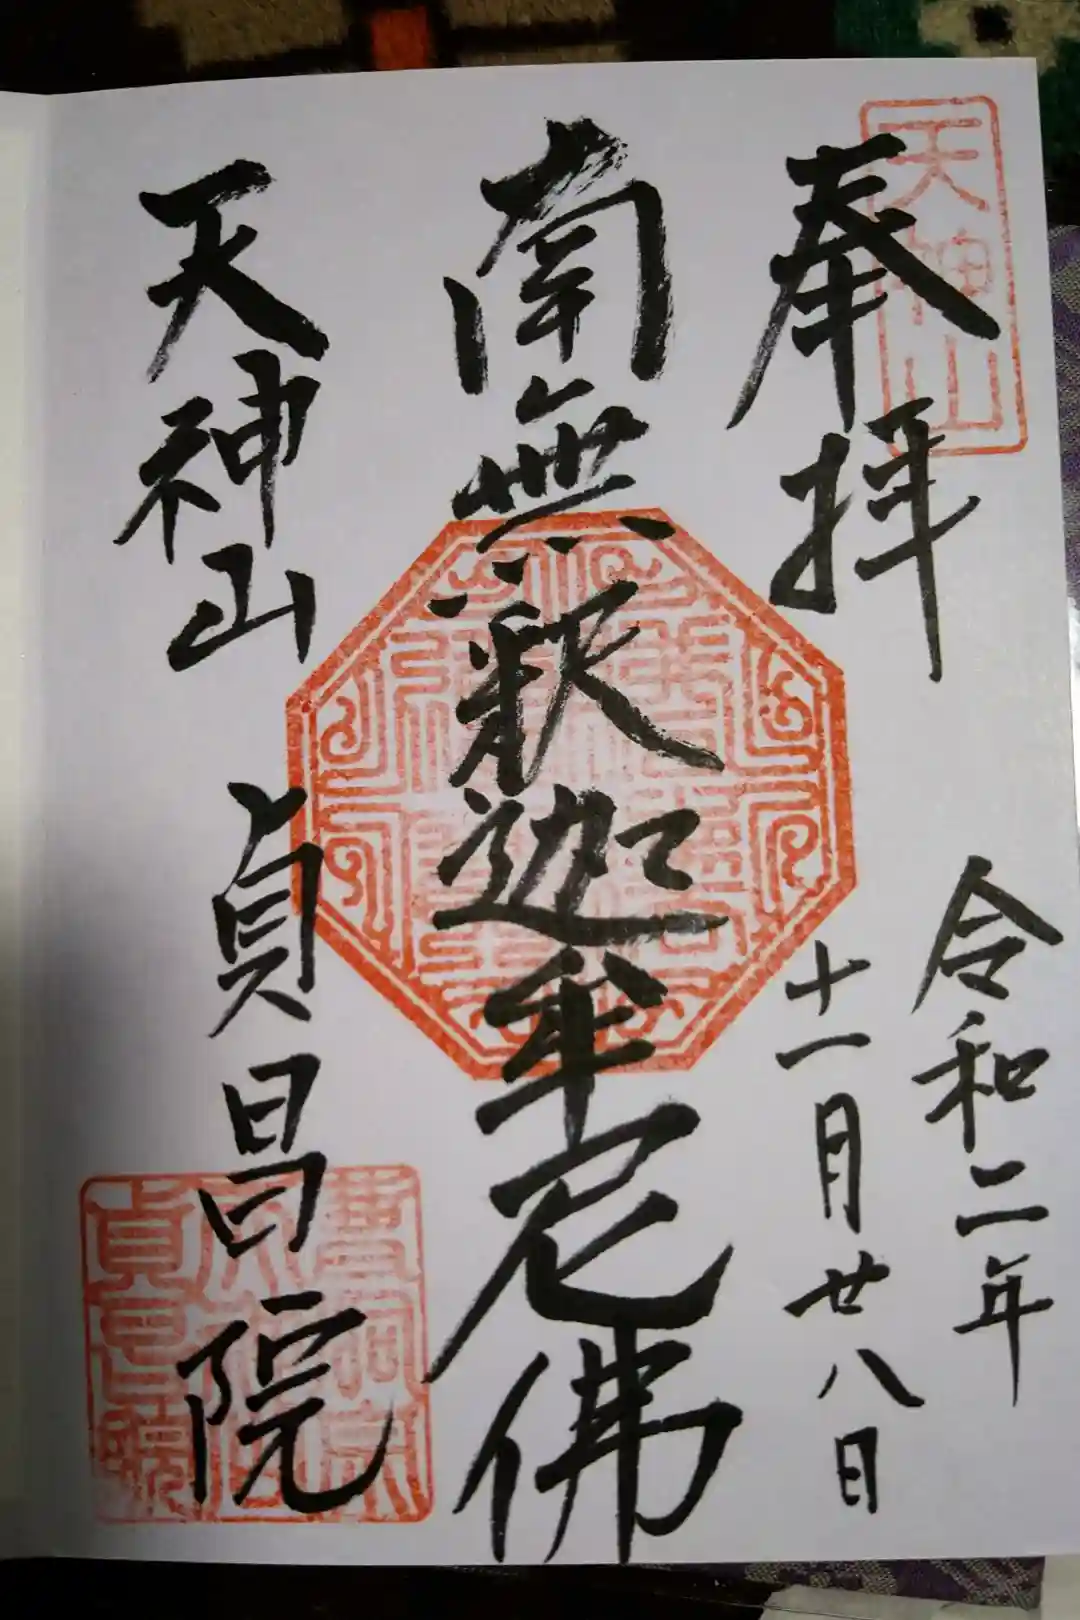 天神山
奉拝
令和二年
十一月廿八日
南無釈迦牟尼佛
天神山 貞昌院